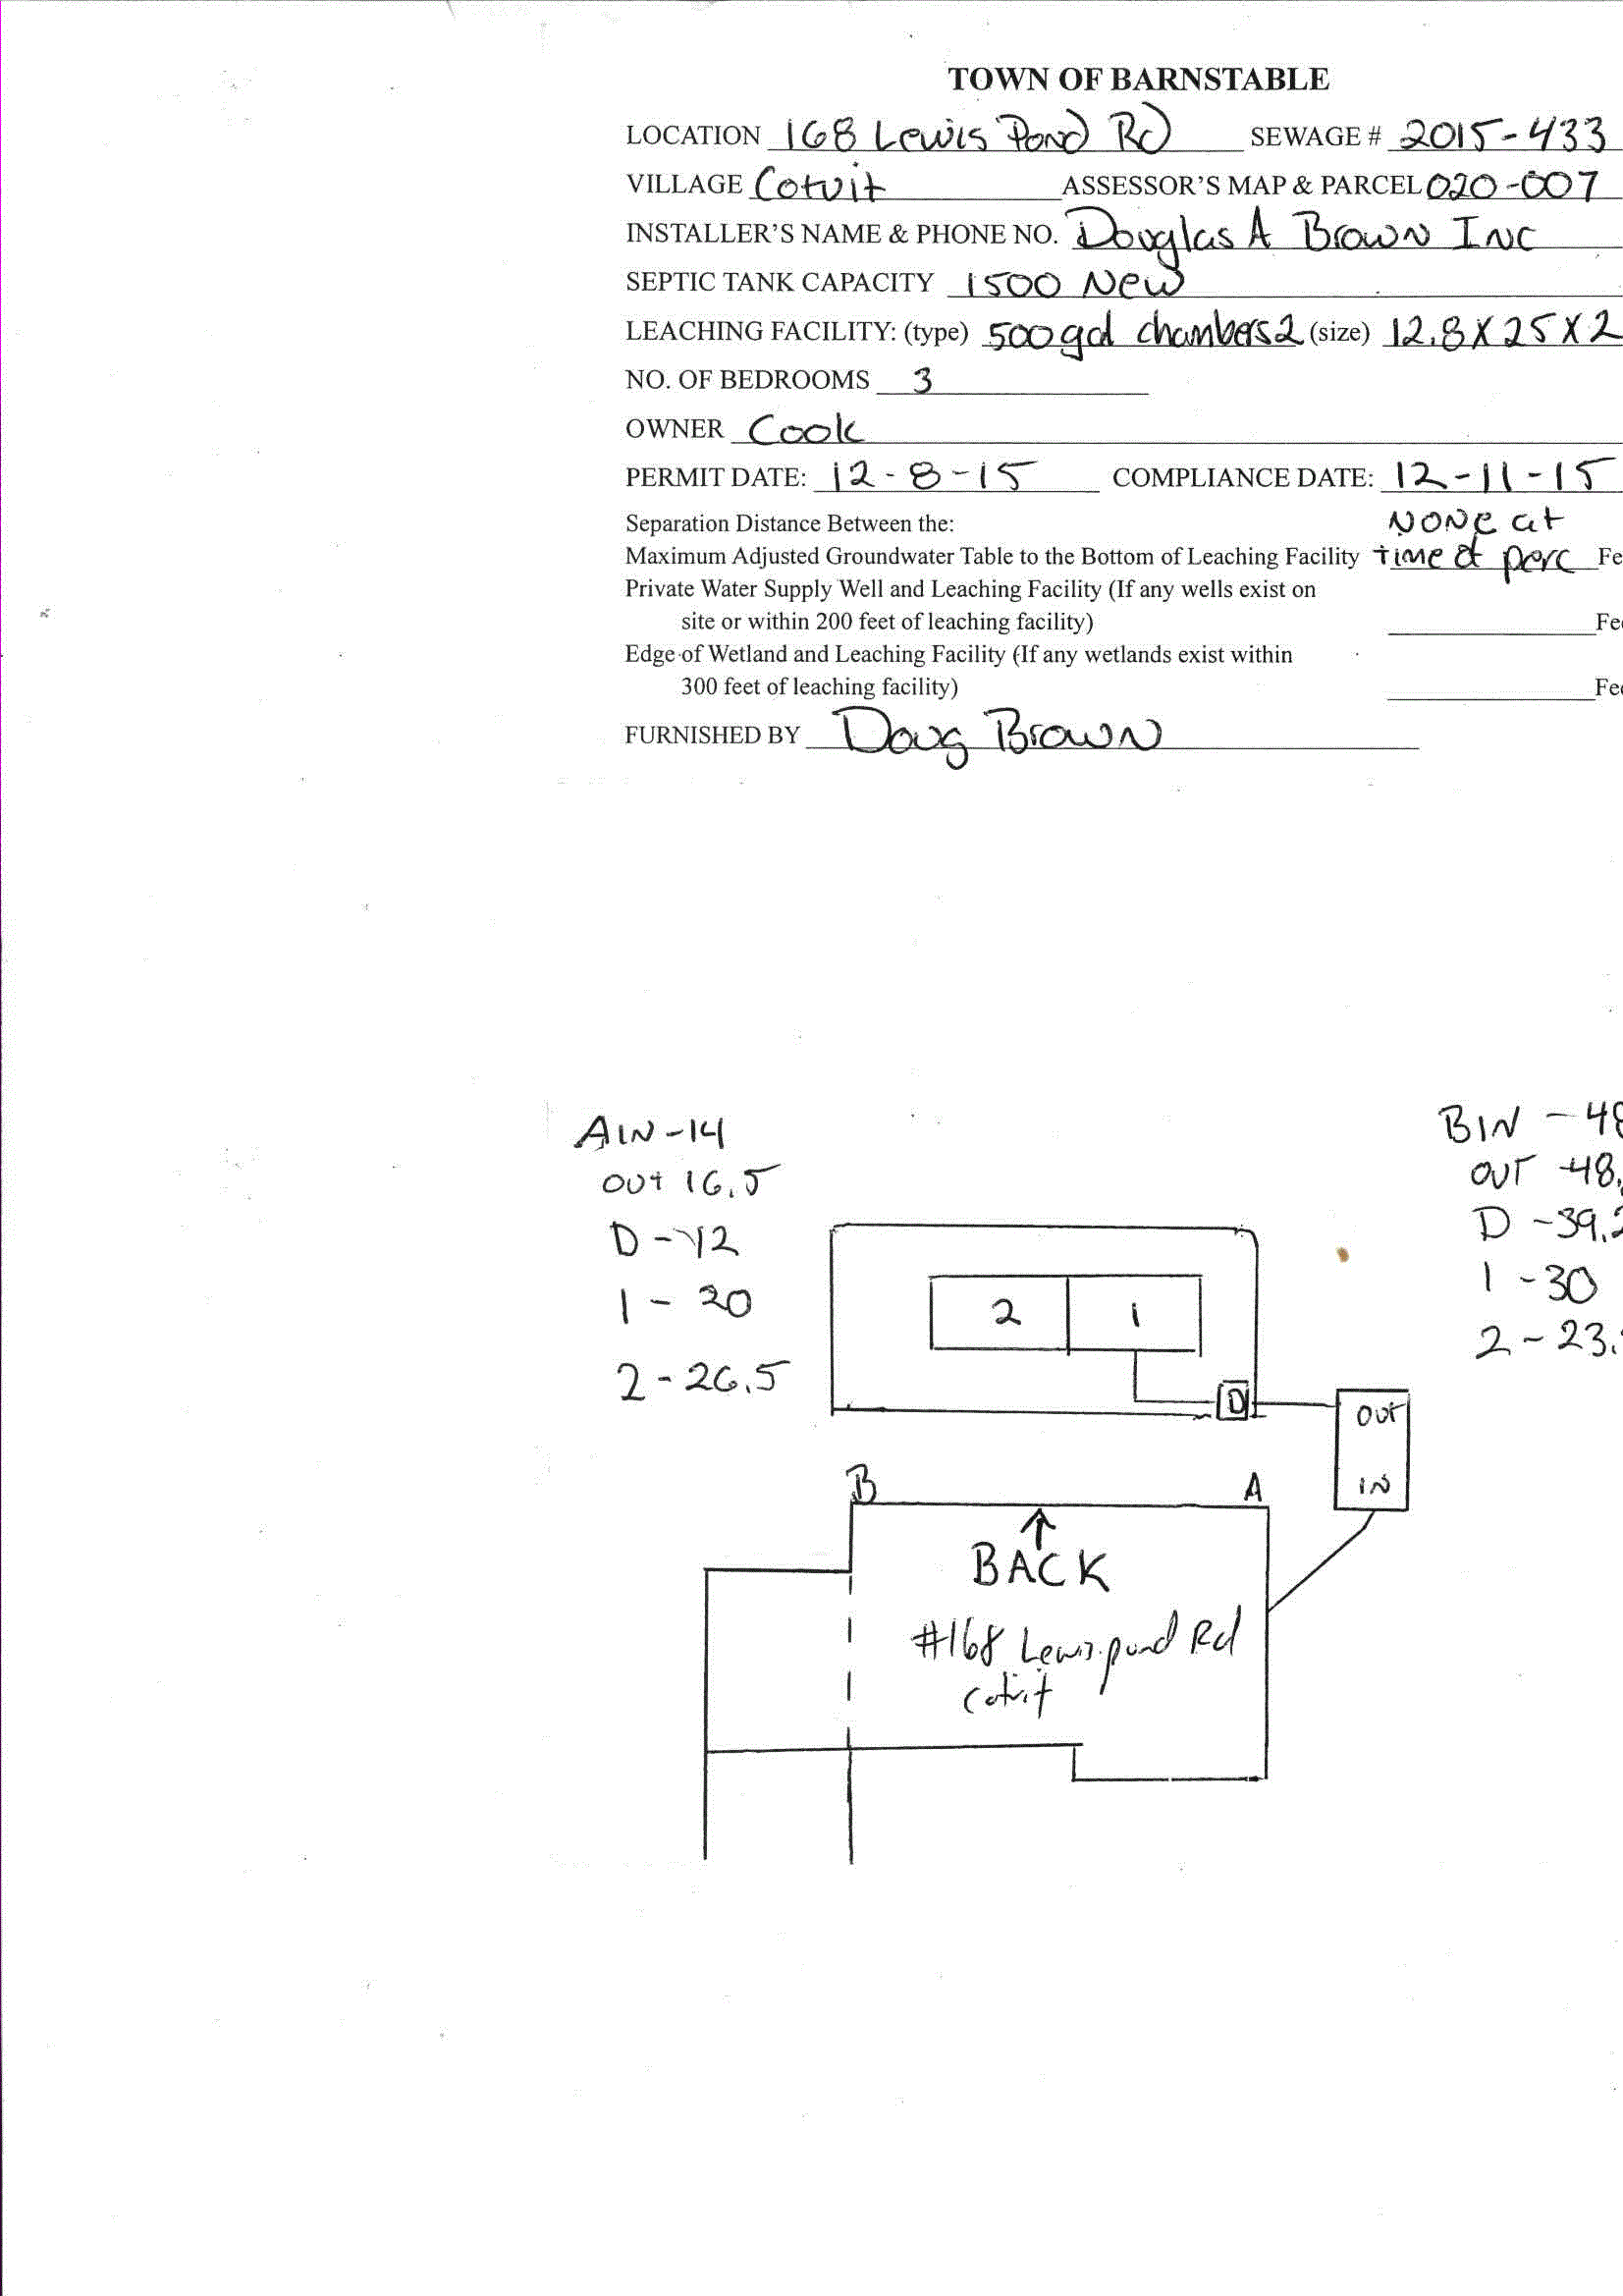 TOWN OF BARNSTABLE
LOCATION 168 Lewis Pond Rd SEWAGE # 2015-433
VILLAGE Cotuit ASSESSOR'S MAP & PARCEL 020-007
INSTALLER'S NAME & PHONE NO. Douglas A Brown Inc
SEPTIC TANK CAPACITY 1500 New
LEACHING FACILITY: (type) 500 gal chambers 2 (size) 12.8 X 25 X 2
NO. OF BEDROOMS 3
OWNER Cook
PERMIT DATE: 12-8-15 COMPLIANCE DATE: 12-11-15
Separation Distance Between the: NONE at
Maximum Adjusted Groundwater Table to the Bottom of Leaching Facility time of perc Fe
Private Water Supply Well and Leaching Facility (If any wells exist on
site or within 200 feet of leaching facility) Fe
Edge of Wetland and Leaching Facility (If any wetlands exist within
300 feet of leaching facility) Fe
FURNISHED BY Doug Brown
A IN - 14 B IN - 48
OUT 16.5 OUT - 48.
D - 12 D - 39.2
1 - 20 1 - 30
2 - 26.5 2 - 23.
2 1
D
OUT
IN
B A
BACK
#168 Lewis pond Rd
Cotuit